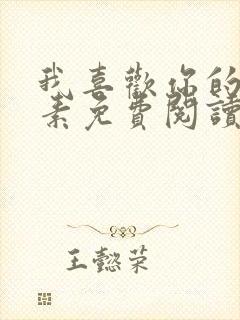 我喜歡你的
素免費閱讀
王懿荣